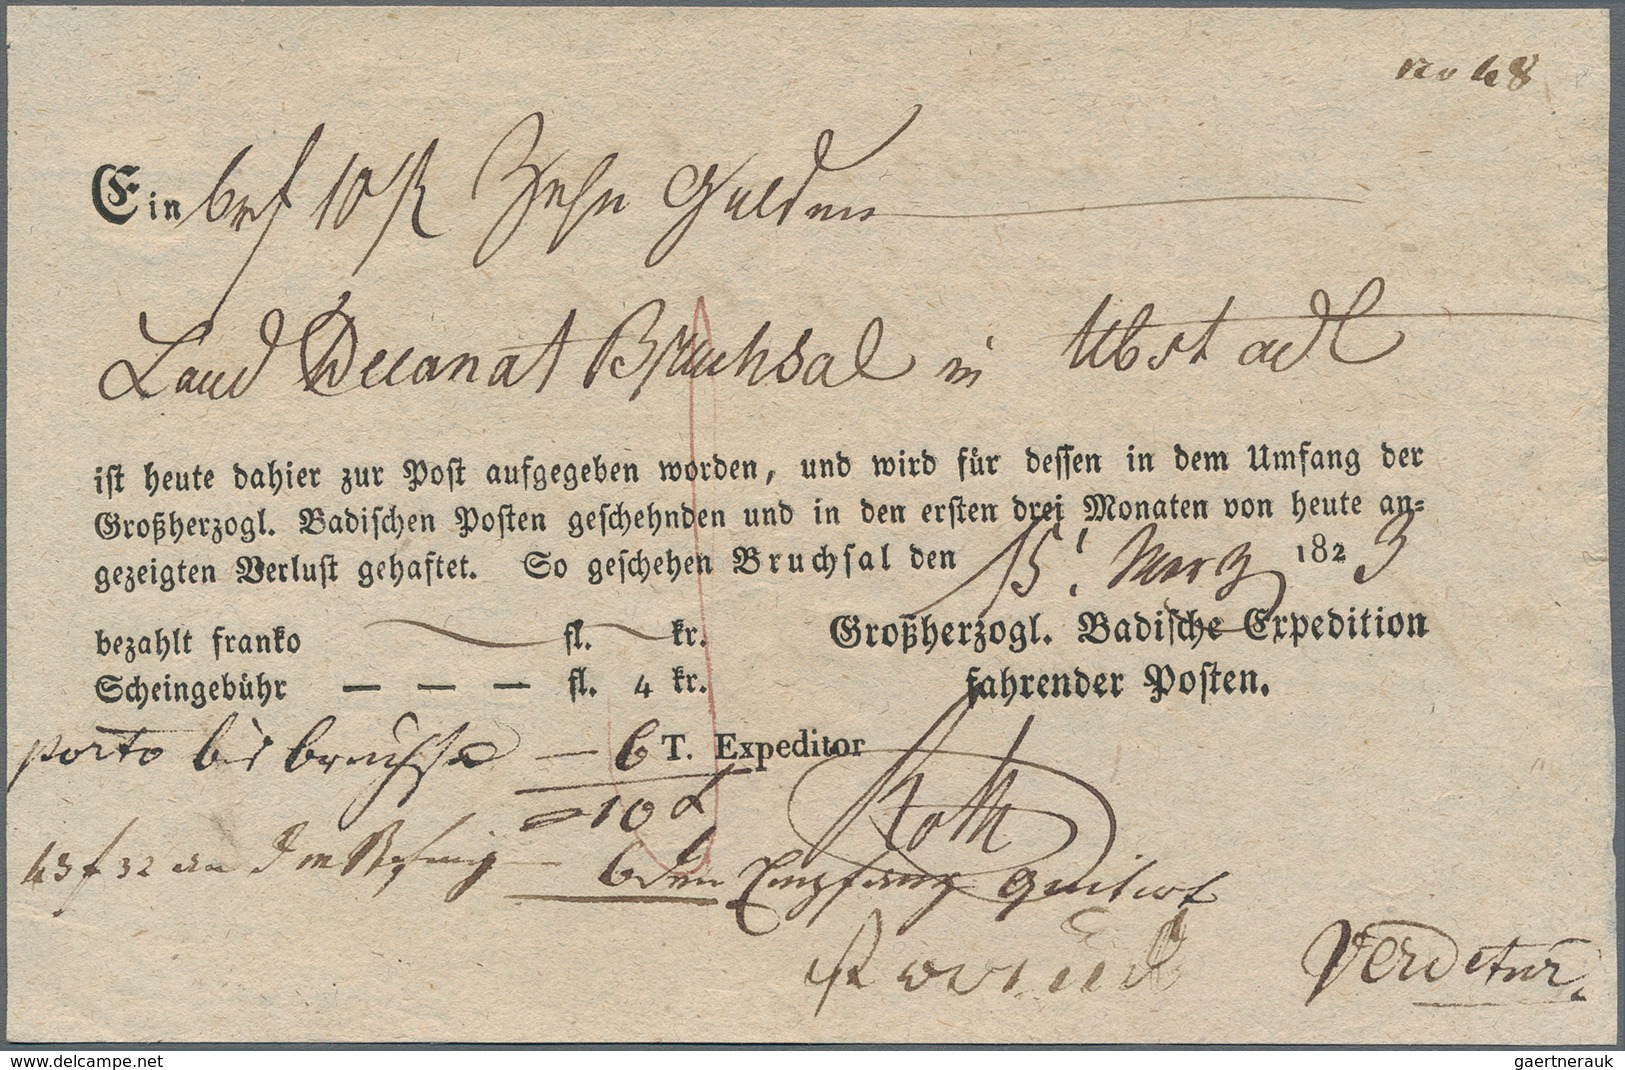 No 48
Ein brf 10 fl Zehn Gulden
Land Decanat Bruchsal in Ubstadt
ist heute dahier zur Post aufgegeben worden, und wird für dessen in dem Umfang der
Großherzogl. Badischen Posten geschehnden und in den ersten drei Monaten von heute an-
gezeigten Verlust gehaftet. So geschehen Bruchsal den 15. Merz 1823
bezahlt franko fl. kr. Großherzogl. Badische Expedition
Scheingebühr — — — fl. 4 kr. fahrender Posten.
porto bis bruchsal — 6 T. Expeditor
= 10 Roth
43 f 32 an — 6 den Empfang quitirt
Verdetur.
www.delcampe.net
gaertnerauk